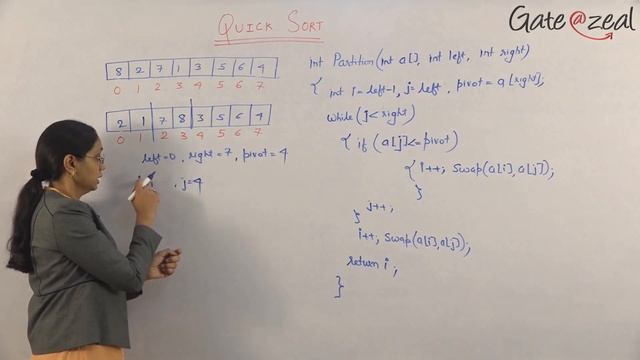 QUICK SORT
Gate@zeal
8 2 7 1 3 5 6 4
0 1 2 3 4 5 6 7
2 1 7 8 3 5 6 4
0 1 2 3 4 5 6 7
left=0, right=7, pivot=4
, j=4
int Partition(int a[], int left, int right)
{ int i=left-1, j=left, pivot=a[right];
while(j<right)
{ if (a[j]<=pivot)
{ i++; swap(a[i],a[j]);
}
j++;
}
i++; swap(a[i],a[j]);
return i;
}